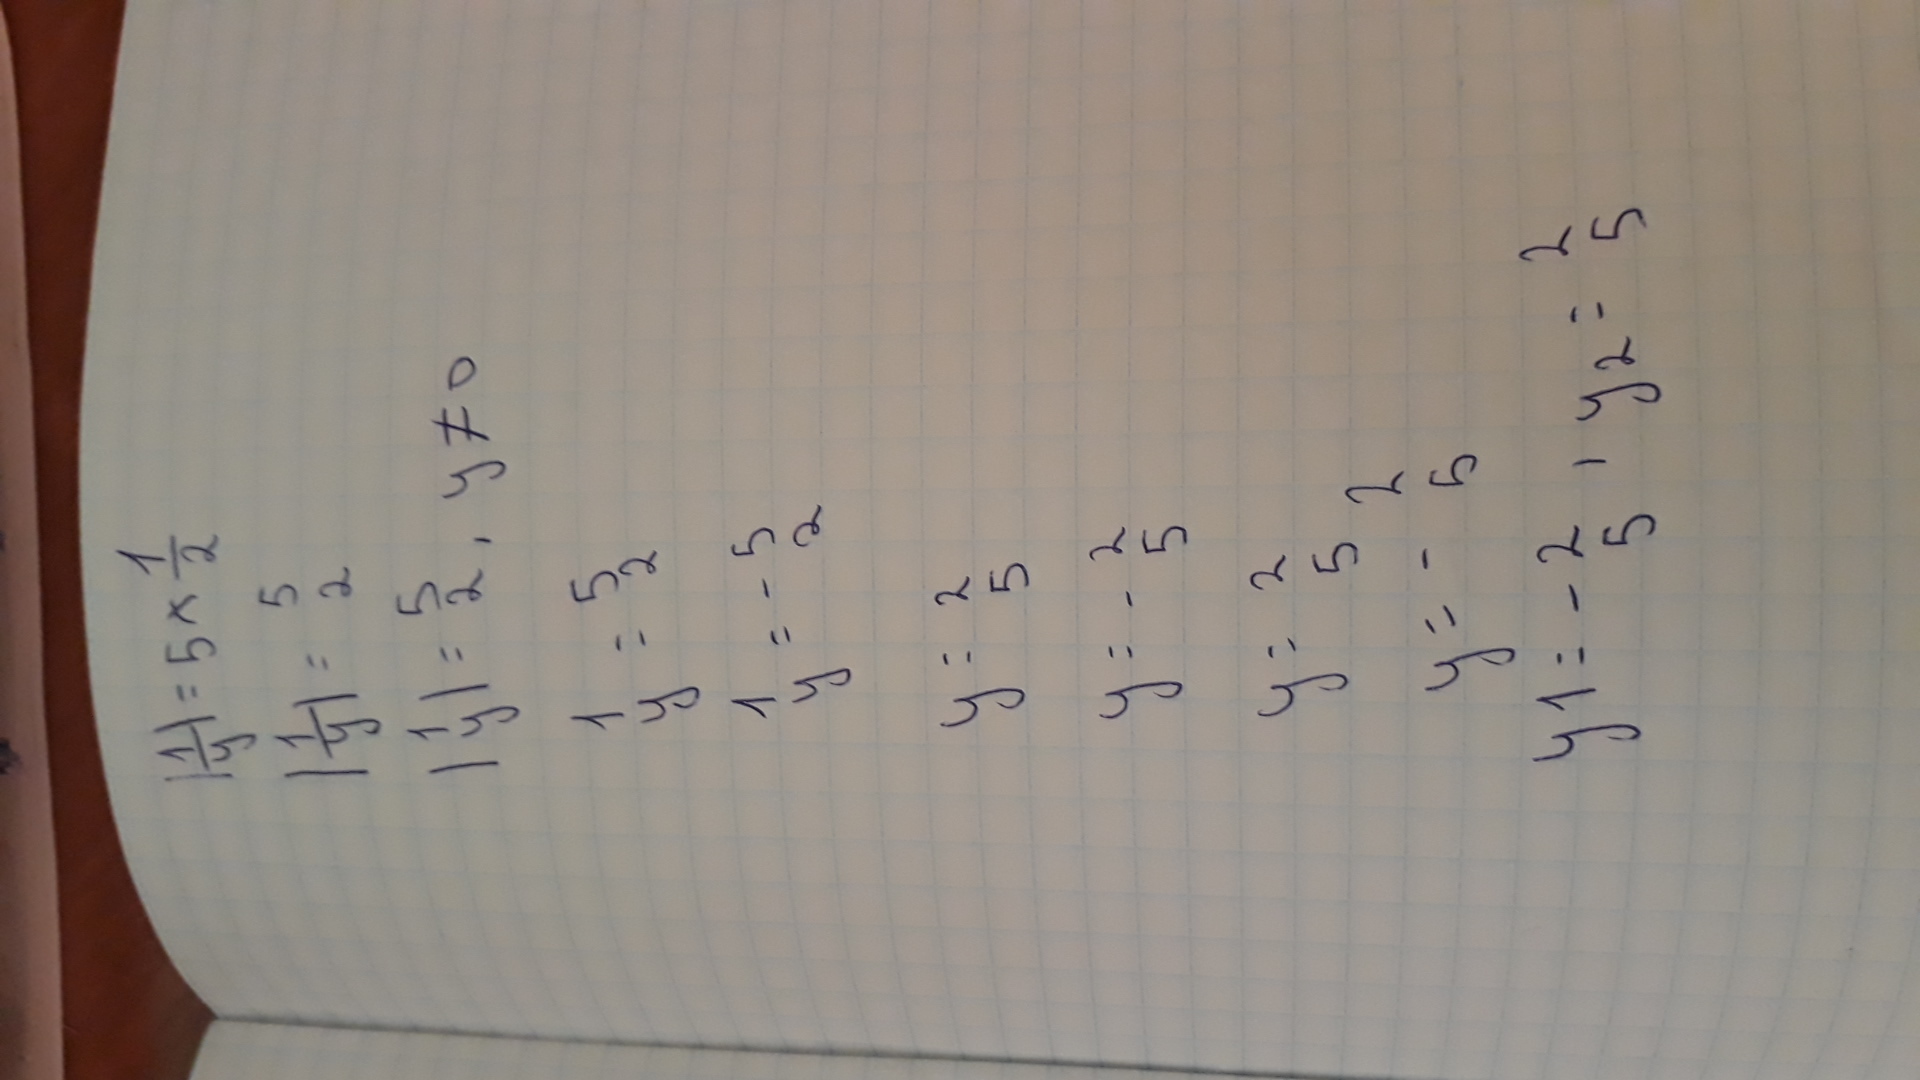 |1/y| = 5 × 1/2
|1/y| = 5/2
|1/y| = 5/2, y≠0
1/y = 5/2
1/y = - 5/2
y = 2/5
y = - 2/5
y = 2/5
y = - 2/5
y1 = - 2/5, y2 = 2/5